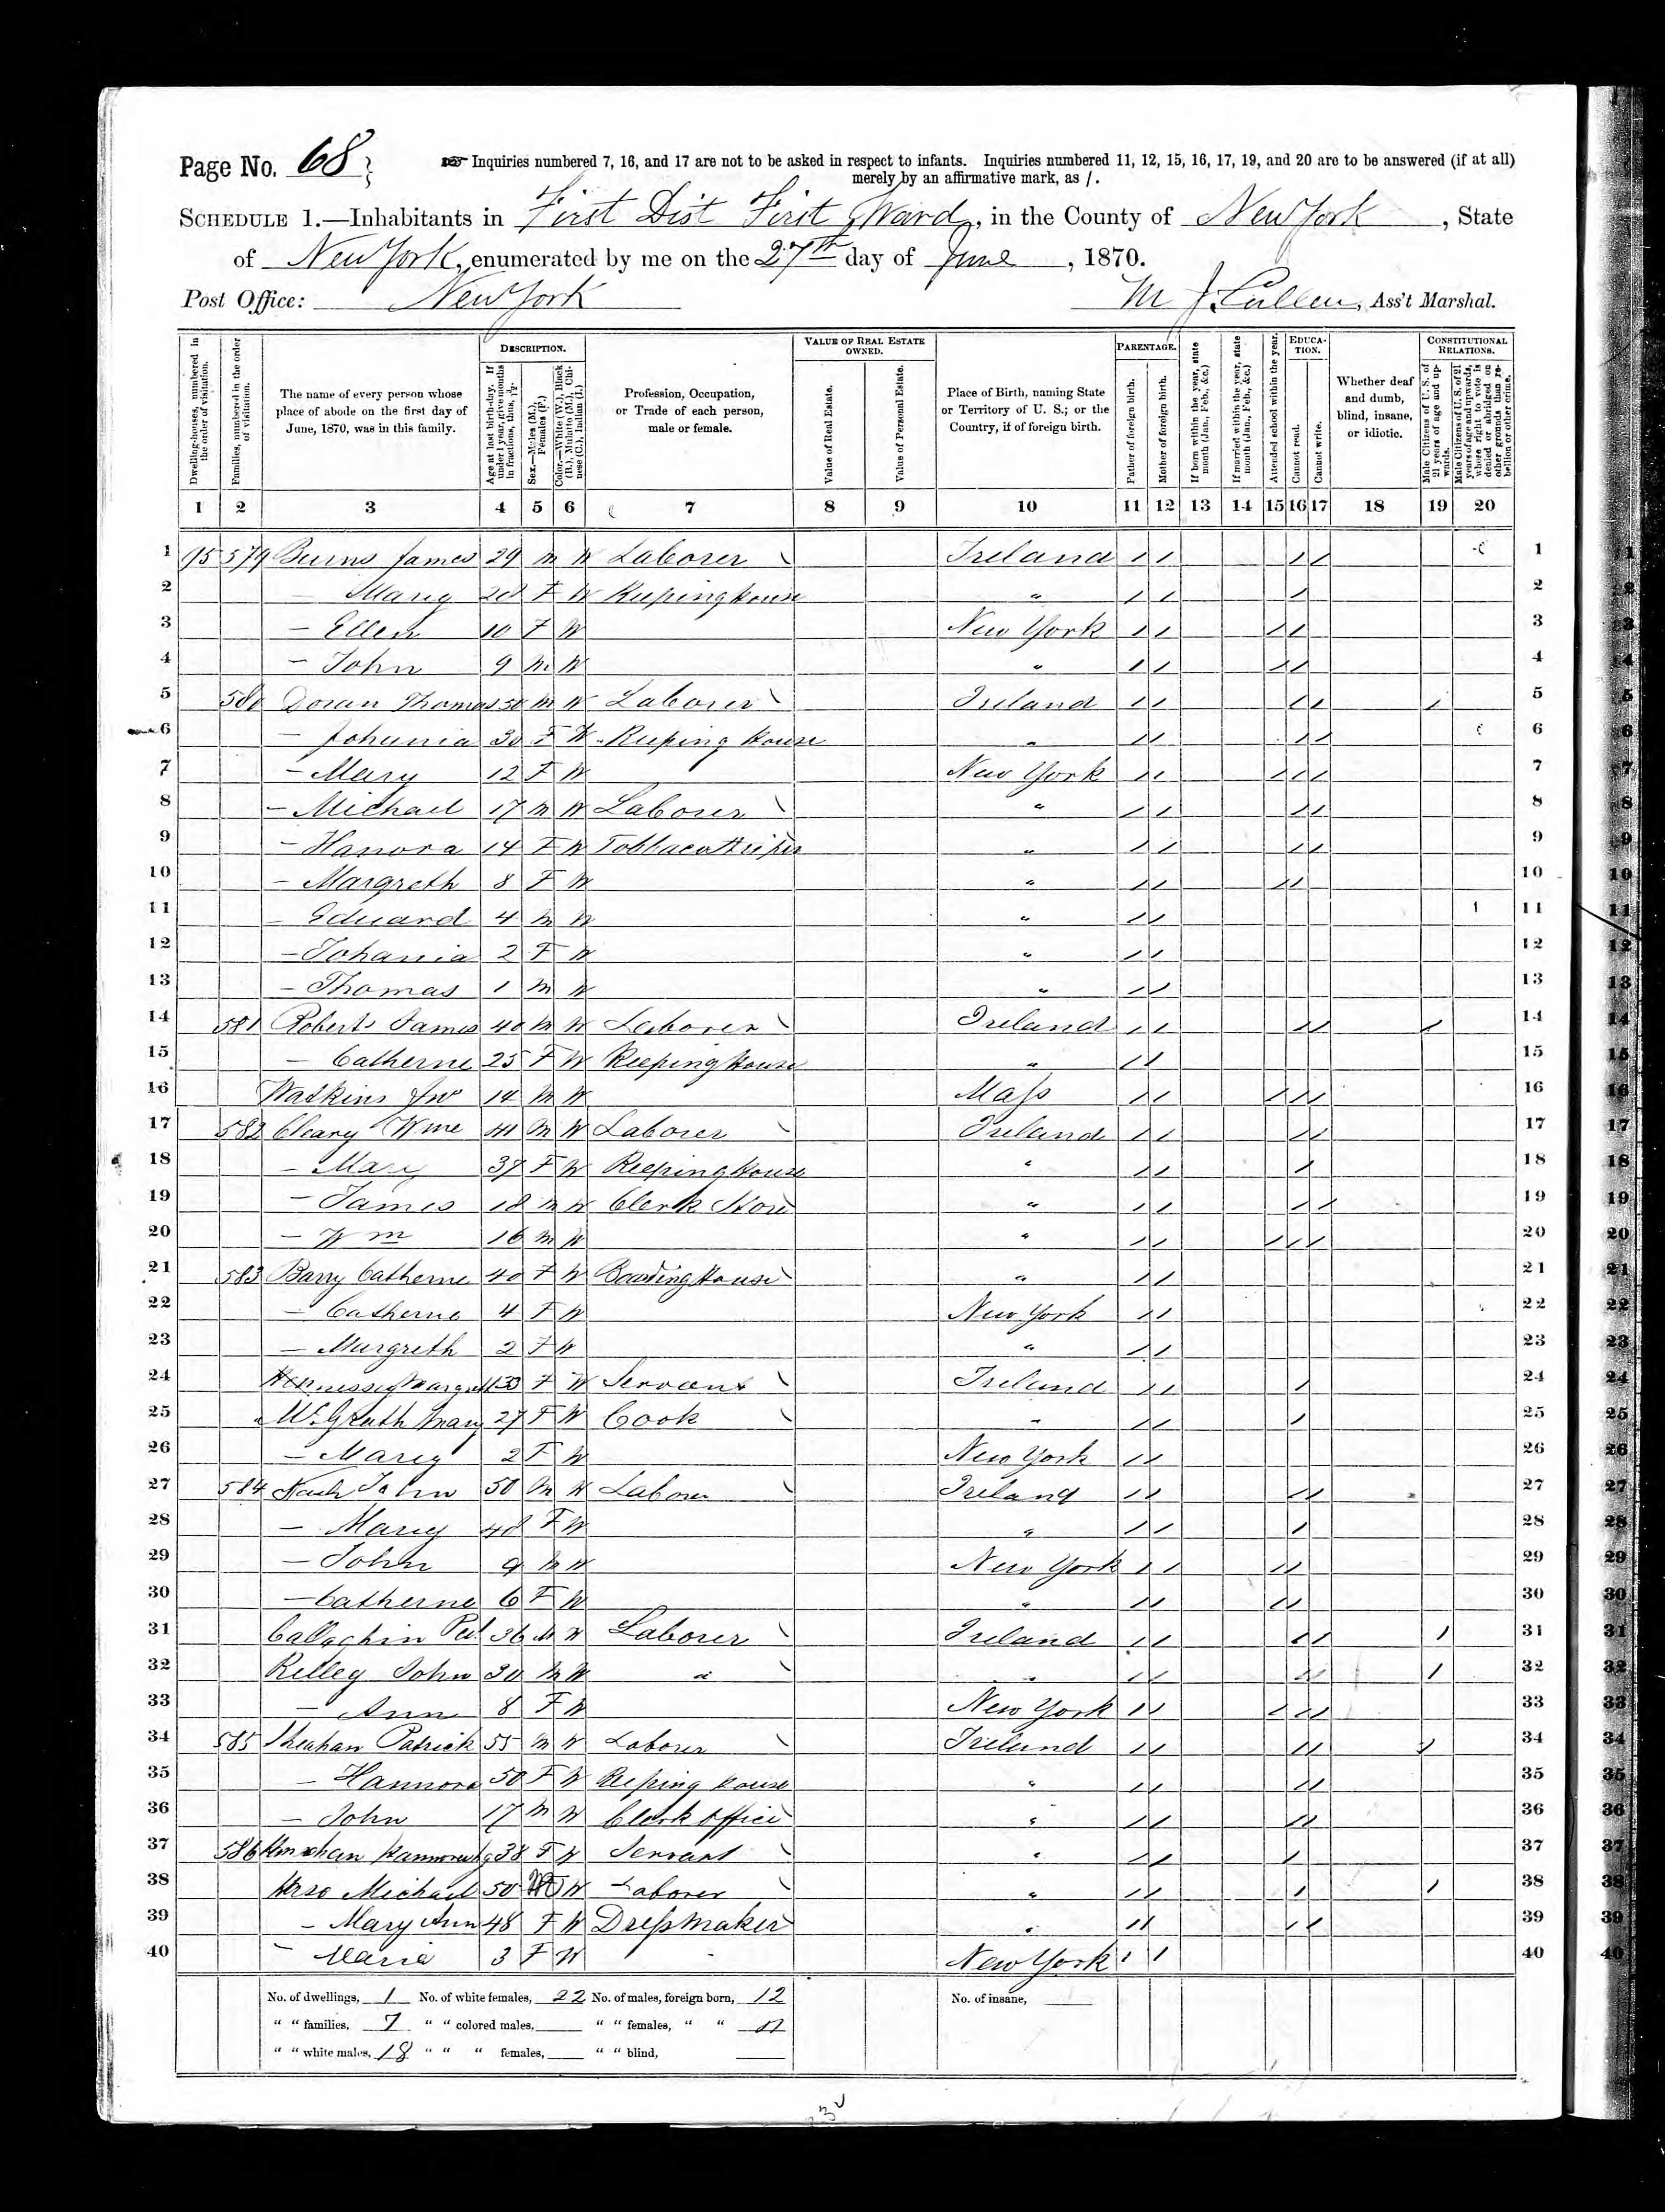 Page No. 68
Inquiries numbered 7, 16, and 17 are not to be asked in respect to infants. Inquiries numbered 11, 12, 15, 16, 17, 19, and 20 are to be answered (if at all)
merely by an affirmative mark, as /.
SCHEDULE 1.—Inhabitants in First Dist First Ward, in the County of New York, State
of New York, enumerated by me on the 27th day of June, 1870.
Post Office: New York
M J. Cullen, Ass't Marshal.
Dwelling-houses, numbered in the order of visitation.
Families, numbered in the order of visitation.
The name of every person whose place of abode on the first day of June, 1870, was in this family.
DESCRIPTION.
Age at last birth-day. If under 1 year, give months in fractions, thus, 3/12.
Sex.—Males (M.), Females (F.)
Color.—White (W.), Black (B.), Mulatto (M.), Chinese (C.), Indian (I.)
Profession, Occupation, or Trade of each person, male or female.
VALUE OF REAL ESTATE OWNED.
Value of Real Estate.
Value of Personal Estate.
Place of Birth, naming State or Territory of U. S.; or the Country, if of foreign birth.
PARENTAGE.
Father of foreign birth.
Mother of foreign birth.
If born within the year, state month (Jan., Feb., &c.)
If married within the year, state month (Jan., Feb., &c.)
Attended school within the year.
EDUCATION.
Cannot read.
Cannot write.
Whether deaf and dumb, blind, insane, or idiotic.
CONSTITUTIONAL RELATIONS.
Male Citizens of U. S. of 21 years of age and upwards.
Male Citizens of U. S. of 21 years of age and upwards, whose right to vote is denied or abridged on other grounds than rebellion or other crime.
1 2 3 4 5 6 7 8 9 10 11 12 13 14 15 16 17 18 19 20
1 95 579 Burns James 29 M W Laborer Ireland / / / / 1
2 — Mary 28 F W Keeping house " / / / 2
3 — Ellen 10 F W New York / / / / 3
4 — John 9 M W " / / / / 4
5 580 Doran Thomas 50 M W Laborer Ireland / / / / / 5
6 — Johania 30 F W Keeping House " / / / / 6
7 — Mary 12 F W New York / / / / / 7
8 — Michael 17 M W Laborer " / / / / 8
9 — Hanora 14 F W " / / / / 9
10 — Margreth 8 F W " / / / / 10
11 — Eduard 4 M W " / / 11
12 — Johania 2 F W " / / 12
13 — Thomas 1 M W " / / 13
14 581 Roberts James 40 M W Laborer Ireland / / / / / 14
15 — Catherne 25 F W Keeping House " / / 15
16 Watkins Jno 14 M W Mass / / / / / 16
17 582 Cleary Wme 41 M W Laborer Ireland / / / / 17
18 — Mary 37 F W Keeping House " / / / 18
19 — James 18 M W Clerk Store " / / / / 19
20 — Wm 16 M W " / / / / / 20
21 583 Barry Catherne 40 F W Boarding House " / / 21
22 — Catherne 4 F W New York / / 22
23 — Margreth 2 F W " / / 23
24 Hennessey Margreth 33 F W Servant Ireland / / / 24
25 McGrath Mary 27 F W Cook " / / / 25
26 — Mary 2 F W New York / / 26
27 584 John 50 M W Laborer Ireland / / / / 27
28 — Mary 48 F W " / / / 28
29 — John 9 M W New York / / / / 29
30 — Catherne 6 F W " / / / / 30
31 Callaghin 36 M W Laborer Ireland / / / / / 31
32 Kelley John 30 M W " " / / / / / 32
33 — Ann 8 F W New York / / / / / 33
34 585 Sheahan Patrick 55 M W Laborer Ireland / / / / / 34
35 — Hannora 50 F W Keeping House " / / / / 35
36 — John 17 M W Clerk Office " / / / / 36
37 586 38 F W Servant " / / / 37
38 Michael 50 W Laborer " / / / / 38
39 — Mary Ann 48 F W Dressmaker " / / / / 39
40 — Maria 3 F W New York / / 40
No. of dwellings, 1 No. of white females, 22 No. of males, foreign born, 12 No. of insane,
" " families, 7 " " colored males, " " females, " "
" " white males, 18 " " " females, " " blind,